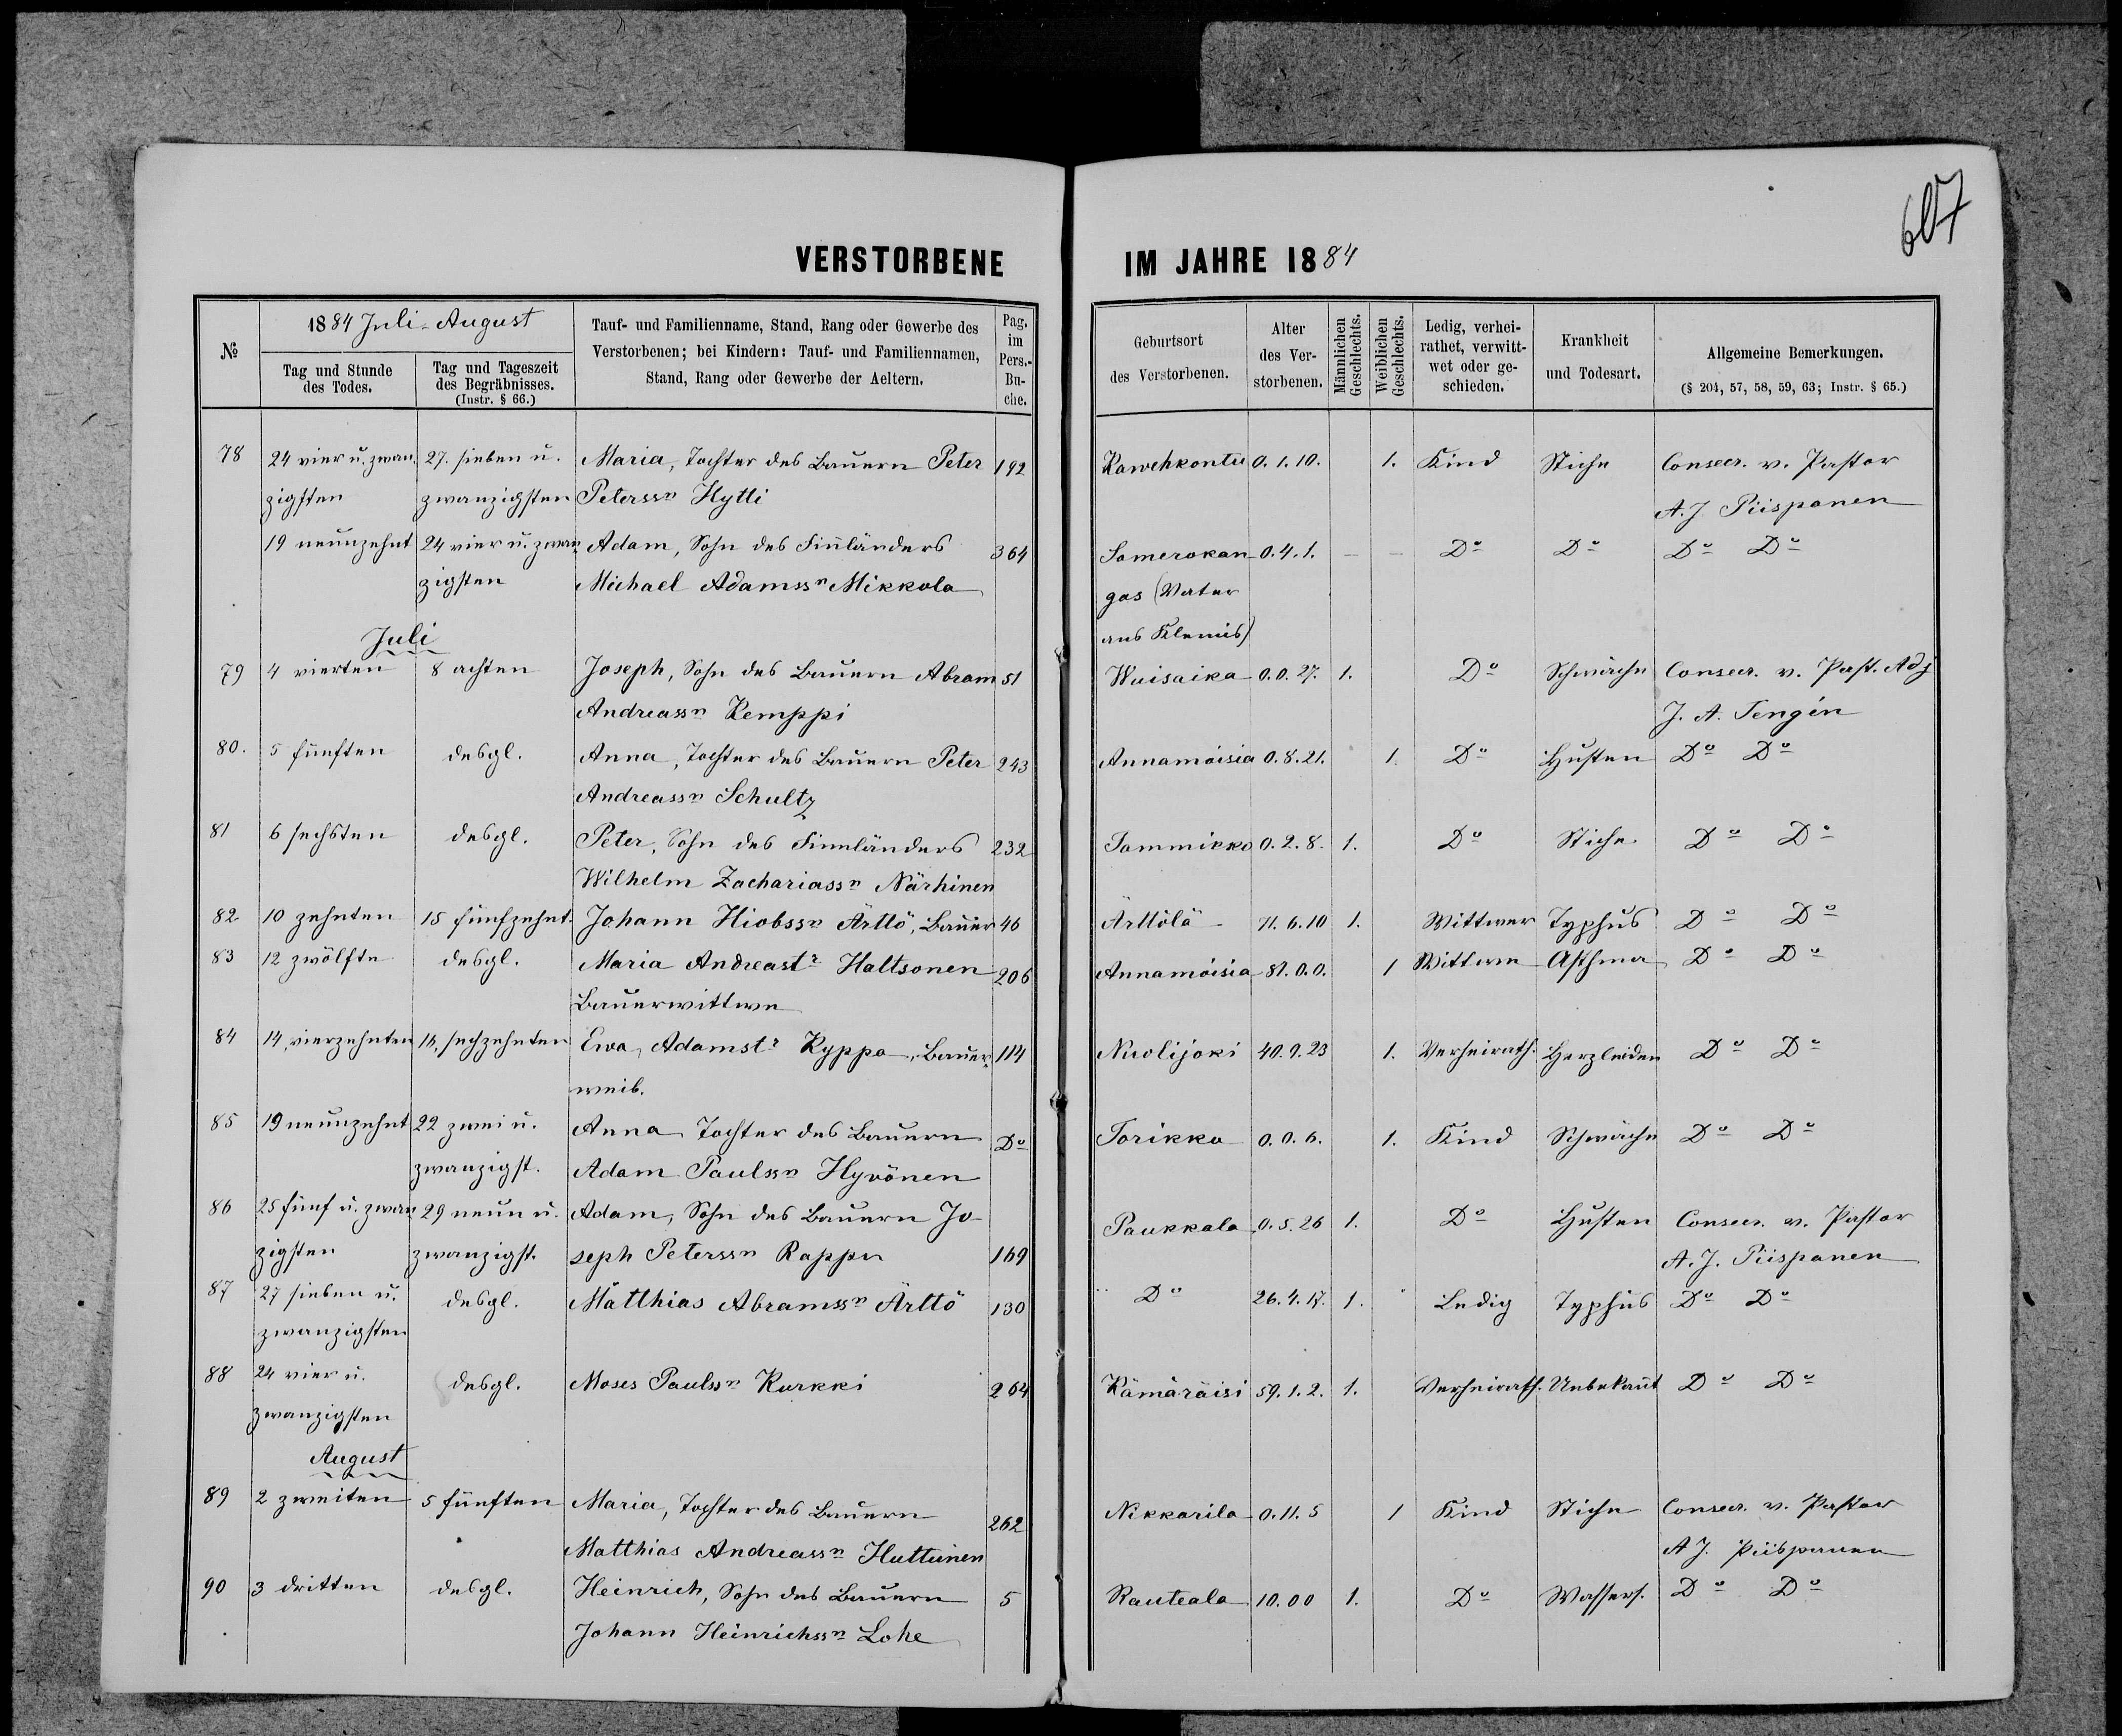 607
VERSTORBENE IM JAHRE 1884
№
1884 Juli-August
Tag und Stunde des Todes.
Tag und Tageszeit des Begräbnisses. (Instr. § 66.)
Tauf- und Familienname, Stand, Rang oder Gewerbe des Verstorbenen; bei Kindern: Tauf- und Familiennamen, Stand, Rang oder Gewerbe der Aeltern.
Pag. im Pers.-Buche.
Geburtsort des Verstorbenen.
Alter des Verstorbenen.
Männlichen Geschlechts.
Weiblichen Geschlechts.
Ledig, verheirathet, verwittwet oder geschieden.
Krankheit und Todesart.
Allgemeine Bemerkungen.
(§ 204, 57, 58, 59, 63; Instr. § 65.)
78 24 vier u. zwan. 27. sieben u. Maria, Tochter des Bauern Peter 192 Kawehkontu 0. 1. 10. 1. Kind Stiche Consecr. v. Pastor
zigsten zwanzigsten Peterssn Hytti A. J. Piisponen
19 neunzehnt 24 vier u. zwan Adam, Sohn des Finländers 364 Somerokan 0. 4. 1. — — Do Do Do Do
zigsten Michael Adamssn Mikkola gas (Vater
aus Klemis)
Juli
79 4 vierten 8 achten Joseph, Sohn des Bauern Abram 51 Wuisaika 0. 0. 27. 1. Do Schwäche Consecr. v. Past. Adj
Andreassn Kemppi J. A. Tengén
80. 5 fünften desgl. Anna, Tochter des Bauern Peter 243 Annamoisia 0. 8. 21. 1 Do Husten Do Do
Andreassn Schultz
81 6 sechsten desgl. Peter, Sohn des Finnländers 232 Sammikko 0. 2. 8. 1. Do Stiche. Do Do
Wilhelm Zachariassn Närhinen
82 10 zehnten 15 fünfzehnt. Johann Hiobssn Ärttö, Bauer 46 Ärttölä 71. 6. 10 1. Wittwer Typhus Do Do
83 12 zwölfte desgl. Maria Andreastr Haltsonen 206 Annamoisia 81. 0. 0. 1 Wittwe Asthma Do Do
Bauerwittwe
84 14, vierzehnten 16, sechzehnten Ewa, Adamstr Kyppa, Bauer 114 Nuolijoki 40. 9. 23 1. Verheirath. Herzleiden Do Do
weib.
85 19 neunzehnt 22 zwei u. Anna Tochter des Bauern Do Torikko 0. 0. 6. 1. Kind Schwäche Do Do
zwanzigst. Adam Paulssn Hyvönen
86 25 fünf u. zwan 29 neun u. Adam, Sohn des Bauern Jo- Paukkala 0. 5. 26 1. Do Husten Consecr. v. Pastor
zigsten zwanzigst. seph Peterssn Rappu 169 A. J. Piispanen
87 27 sieben u. desgl. Matthias Abramssn Ärttö 130 Do 26. 4. 17. 1. Ledig Typhus Do Do
zwanzigsten
88 24 vier u. desgl. Moses Paulssn Kurkki 264 Kämäräisi 59. 1. 2. 1. Verheirath. Unbekant Do Do
zwanzigsten
August
89 2 zweiten 5 fünften Maria, Tochter des Bauern 262 Nikkarila 0. 11. 5 1 Kind Stiche Consecr. v. Pastor
Matthias Andreassn Huttunen A J. Piispanen
90 3 dritten desgl. Heinrich, Sohn des Bauern 5 Rauteala 10. 00 1. Do Wassers. Do Do
Johann Heinrichssn Lohe